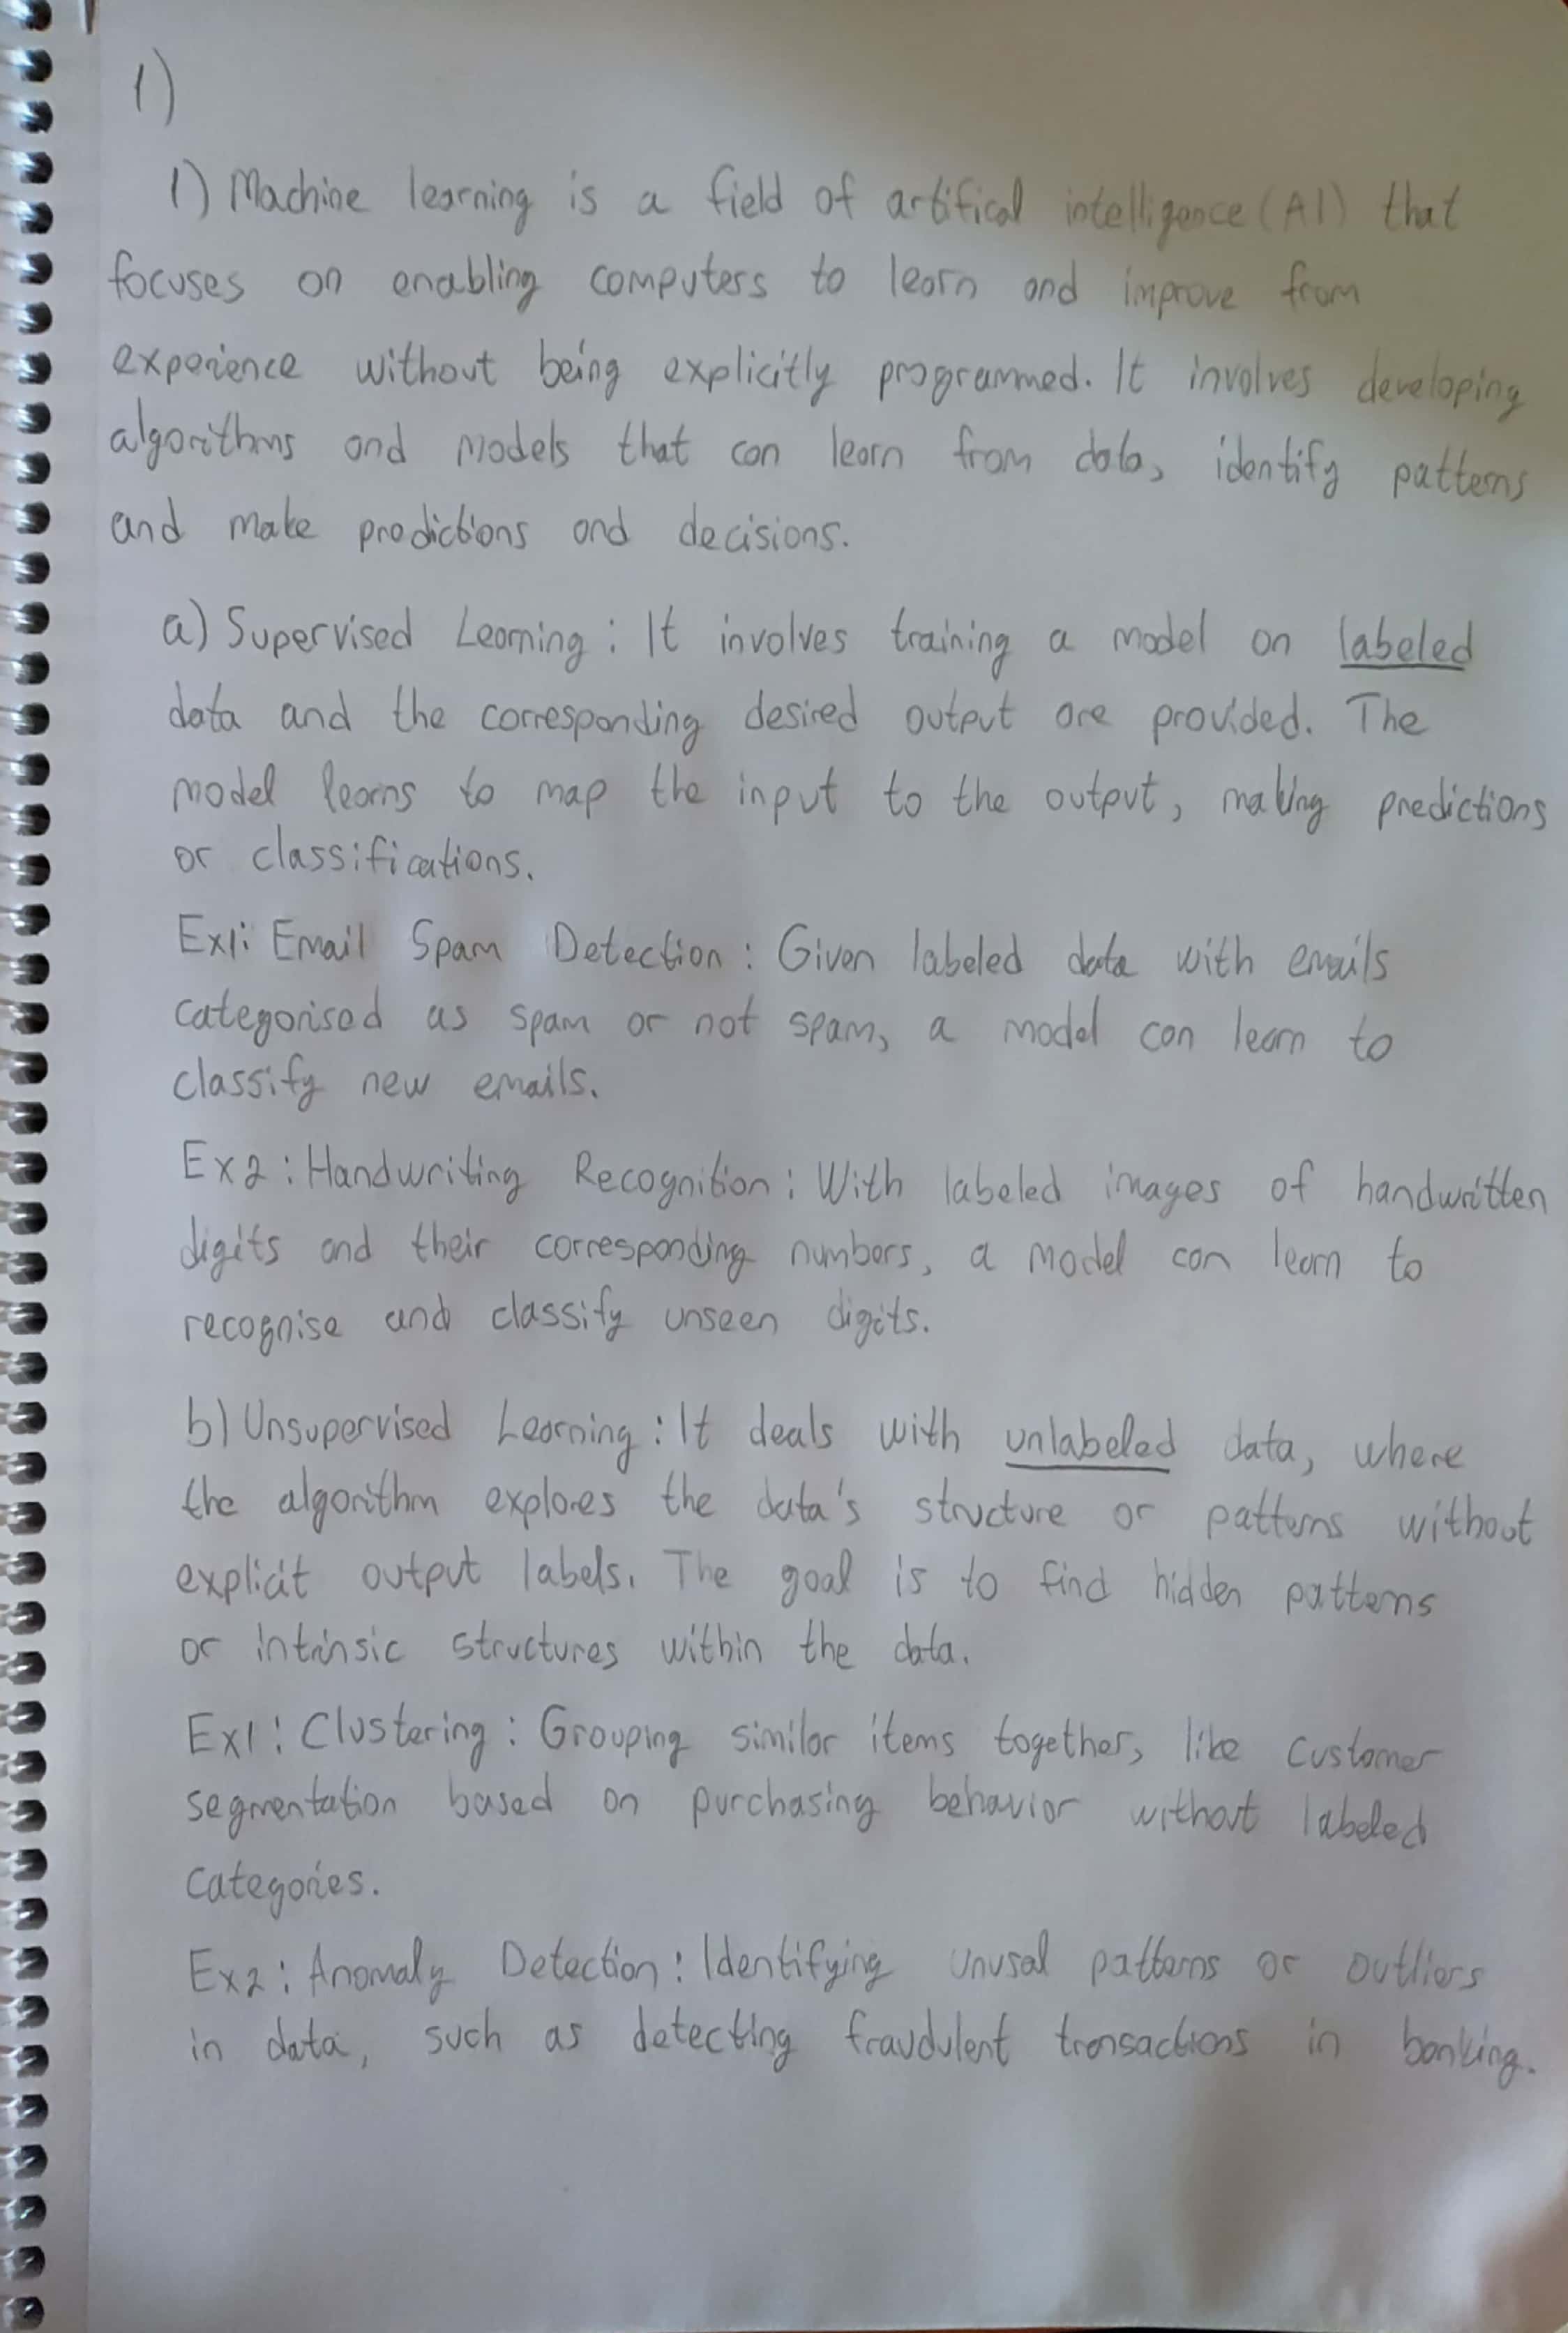 1)
1) Machine learning is a field of artifical intelligence (AI) that
focuses on enabling computers to learn and improve from
experience without being explicitly programmed. It involves developing
algorithms and models that can learn from data, identify patterns
and make predictions and decisions.
a) Supervised Learning : It involves training a model on labeled
data and the corresponding desired output are provided. The
model learns to map the input to the output, making predictions
or classifications.
Ex1: Email Spam Detection : Given labeled data with emails
categorised as spam or not spam, a model can learn to
classify new emails.
Ex2 : Handwriting Recognition : With labeled images of handwritten
digits and their corresponding numbers, a model can learn to
recognise and classify unseen digits.
b) Unsupervised Learning : It deals with unlabeled data, where
the algorithm explores the data's structure or patterns without
explicit output labels. The goal is to find hidden patterns
or intrinsic structures within the data.
Ex1 : Clustering : Grouping similar items together, like customer
segmentation based on purchasing behavior without labeled
categories.
Ex2 : Anomaly Detection : Identifying unusal patterns or outliers
in data, such as detecting fraudulent transactions in banking.